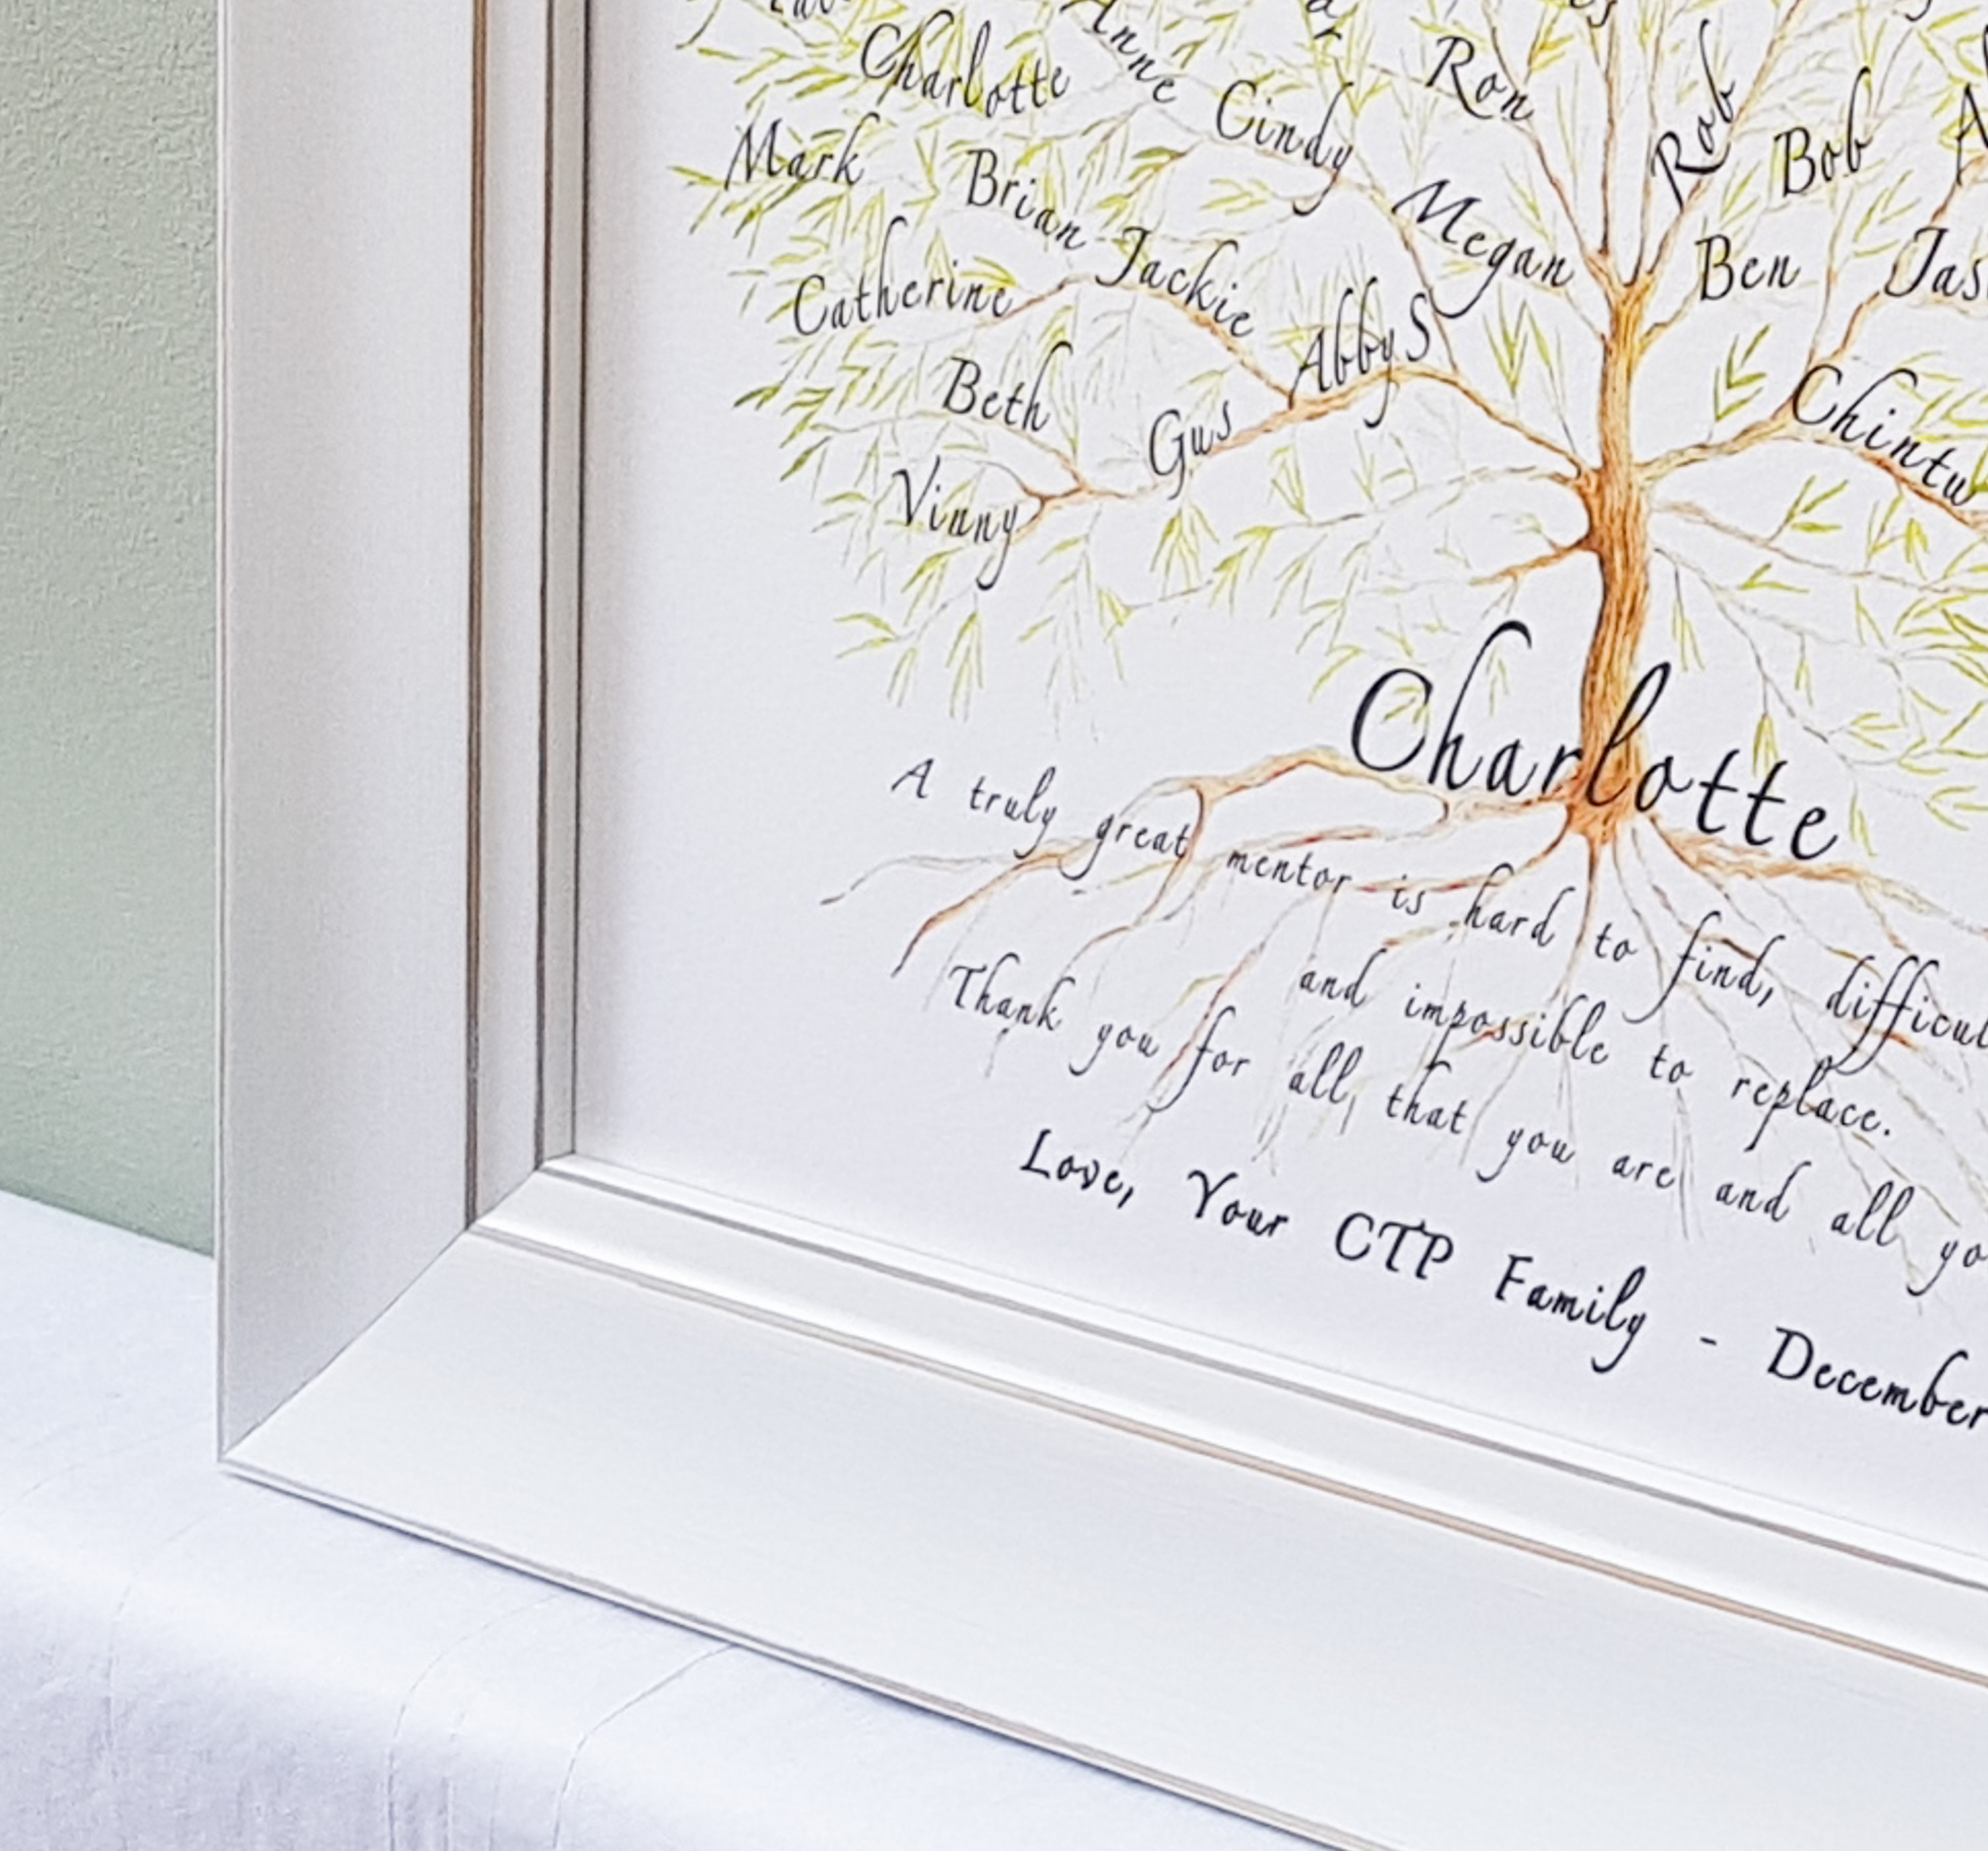 Charlotte
Anne
Ron
Cindy
Rob
Bob
Mark
Brian
Megan
Catherine
Jackie
Ben
Jas
Abby S
Beth
Gus
Chintu
Vinny
Charlotte
A truly great mentor is hard to find, difficul
and impossible to replace.
Thank you for all that you are and all yo
Love, Your CTP Family - December